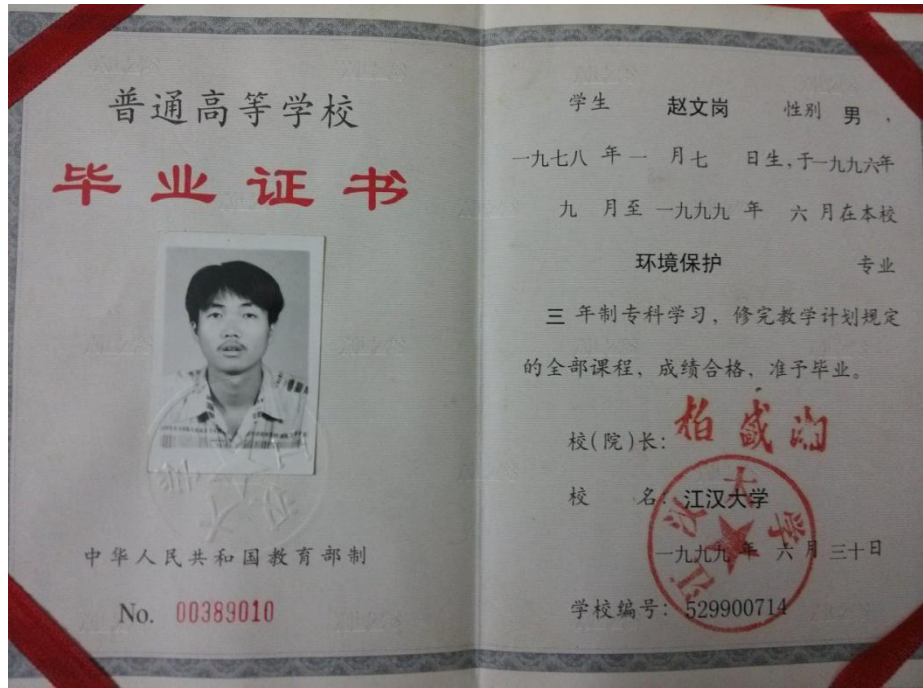 普通高等学校
毕业证书
中华人民共和国教育部制
No. 00389010
学生 赵文岗 性别 男，
一九七八 年 一 月 七 日生，于一九九六年
九 月至 一九九九 年 六 月在本校
环境保护 专业
三 年制专科学习，修完教学计划规定
的全部课程，成绩合格，准予毕业。
校(院)长：柏盛湘
校 名：江汉大学
江汉大学
一九九九 年 六 月 三十日
学校编号：529900714